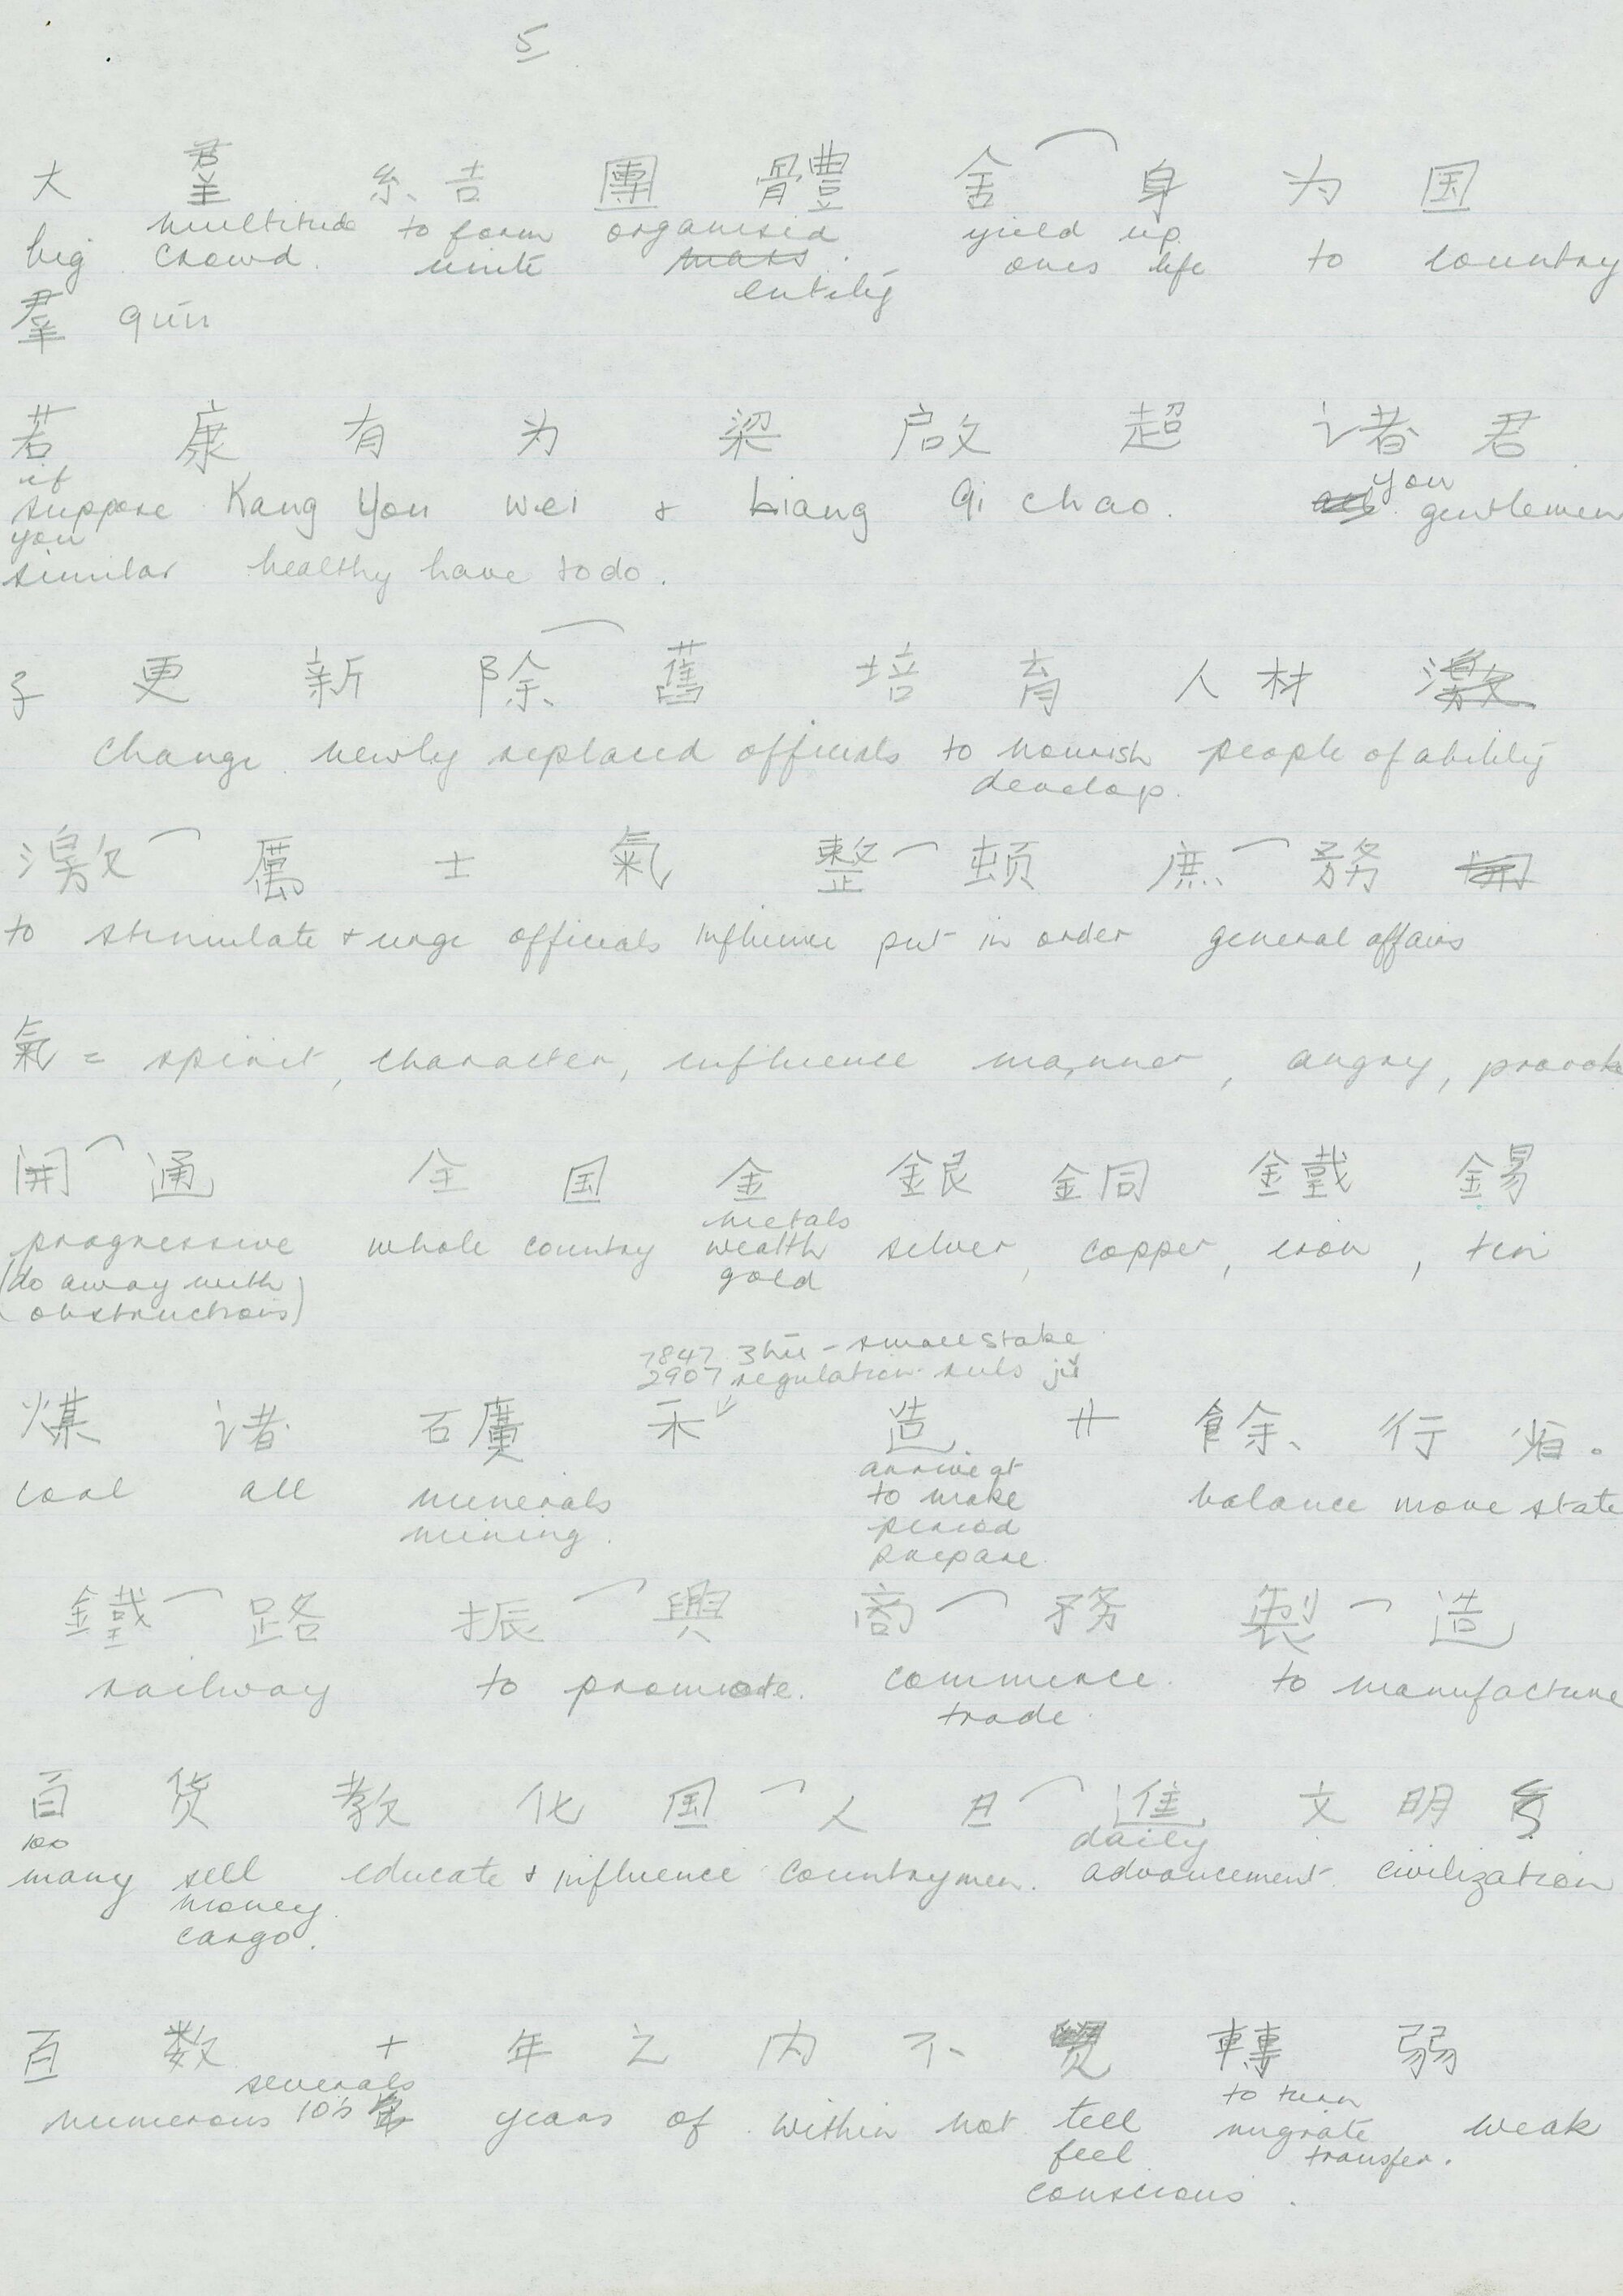 5
大 羣 結 團 體 舍 身 为 国
multitude to form organised yield up
big crowd. unite mass. ones life to country
entity
羣 qún
若 康 有 为 梁 啟 超 诸 君
if you
suppose Kang You wei & Liang Qi chao. gentlemen
you
similar healthy have to do.
子 更 新 除 舊 培 育 人 材 激
change newly replaced officials to nourish people of ability
develop.
激 厲 士 氣 整 頓 庶 務 開
to stimulate & urge officials influence put in order general affairs
氣 = spirit, character, influence manner, angry, provok
開 通 全 国 金 銀 銅 鐵 錫
metals
progressive whole country wealth silver, copper, iron, tin
(do away with gold
obstructions)
7847 zhū - small stake
2907 regulation. rules jǔ
煤 诸 礦 禾 造 廿 餘 行 省。
arrive at
coal all minerals to make balance move state
mining. period
prepare.
鐵 路 振 興 商 務 製 造
railway to promote. commerce. to manufacture
trade.
百 货 教 化 国 人 日 進 文 明
100 daily
many sell educate & influence countrymen. advancement. civilization
money.
cargo.
百 数 十 年 之 内 不 覺 轉 弱
severals to turn
numerous 10's years of within not tell migrate weak
feel transfer.
conscious.